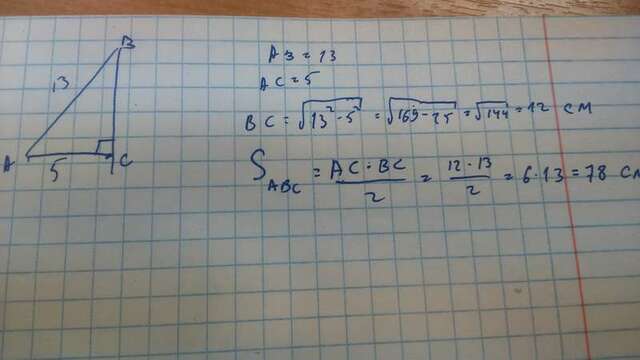 B
13
A
5
C
AB = 13
AC = 5
BC = √(13² - 5²) = √(169 - 25) = √144 = 12 см
S_ABC = (AC · BC)/2 = (12 · 13)/2 = 6 · 13 = 78 см